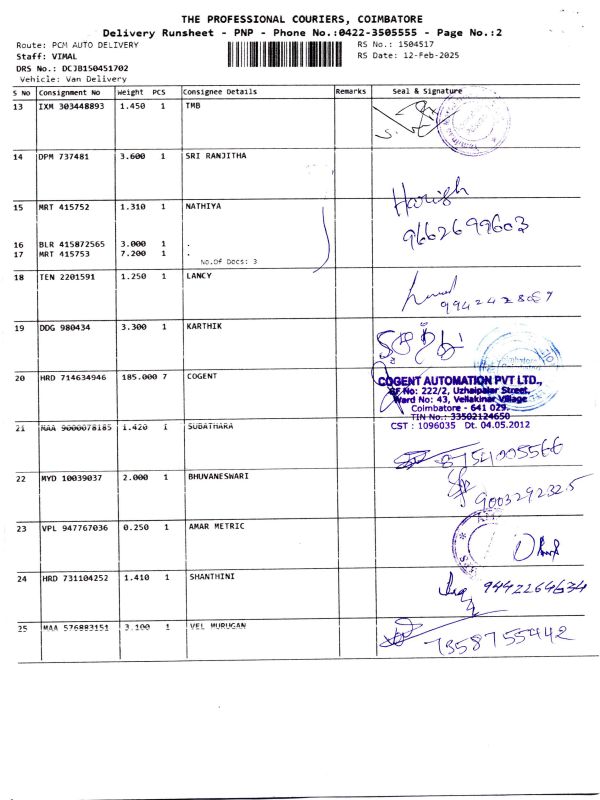 THE PROFESSIONAL COURIERS, COIMBATORE
Delivery Runsheet - PNP - Phone No.:0422-3505555 - Page No.:2
Route: PCM AUTO DELIVERY
RS No.: 1504517
Staff: VIMAL
RS Date: 12-Feb-2025
DRS No.: DCJB150451702
Vehicle: Van Delivery
S No Consignment No Weight PCS Consignee Details Remarks Seal & Signature
13 IXM 303448893 1.450 1 TMB
14 DPM 737481 3.600 1 SRI RANJITHA
15 MRT 415752 1.310 1 NATHIYA
Harish
9662699603
16 BLR 415872565 3.000 1 .
17 MRT 415753 7.200 1 .
No.Of Docs: 3
18 TEN 2201591 1.250 1 LANCY
9942428067
19 DDG 980434 3.300 1 KARTHIK
20 HRD 714634946 185.000 7 COGENT
COGENT AUTOMATION PVT LTD.,
SF No: 222/2, Uzhaipalar Street,
Ward No: 43, Vellakinar Village
Coimbatore - 641 029.
TIN No.: 33502124650
CST : 1096035 Dt. 04.05.2012
21 MAA 9000078185 1.420 1 SUBATHARA
8754005566
22 MYD 10039037 2.000 1 BHUVANESWARI
9003292325
23 VPL 947767036 0.250 1 AMAR METRIC
24 HRD 731104252 1.410 1 SHANTHINI
9442264634
25 MAA 576883151 3.100 1 VEL MURUGAN
7358755442